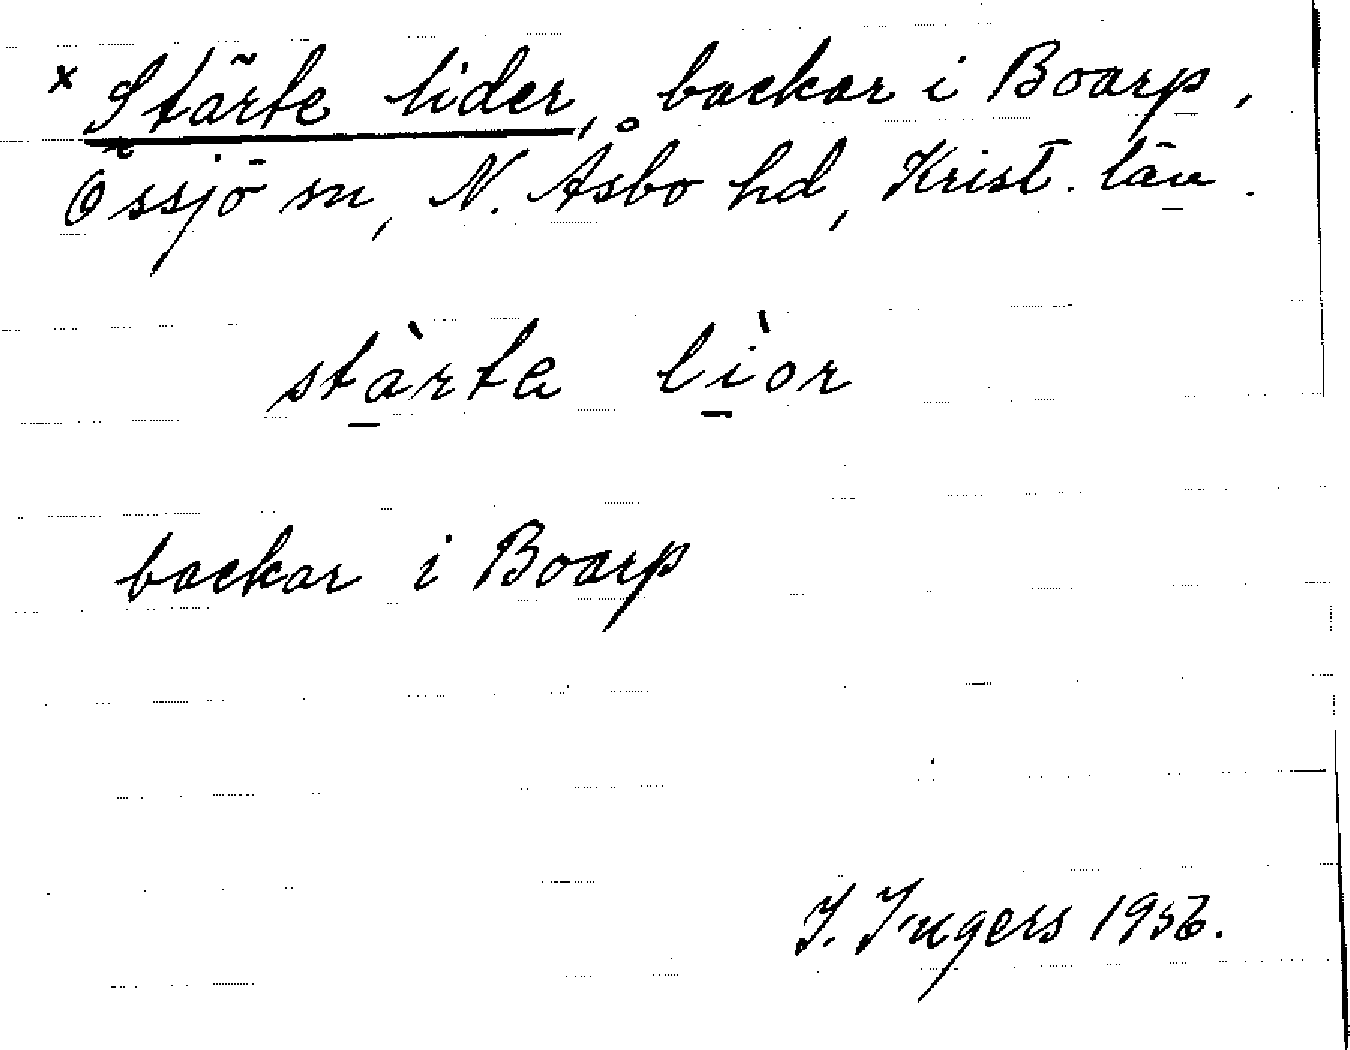 x Stärte lider, backar i Boarp,
Össjö sn, N. Åsbo hd, Krist. län.
stàrta lìor
backar i Boarp
I. Ingers 1956.